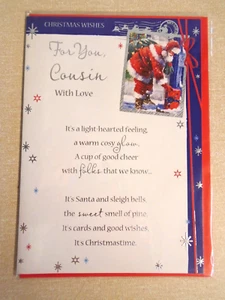 CHRISTMAS WISHES
For You,
Cousin
With Love
It's a light-hearted feeling,
a warm cosy glow.
A cup of good cheer
with folks that we know...
It's Santa and sleigh bells,
the sweet smell of pine.
It's cards and good wishes.
It's Christmastime.